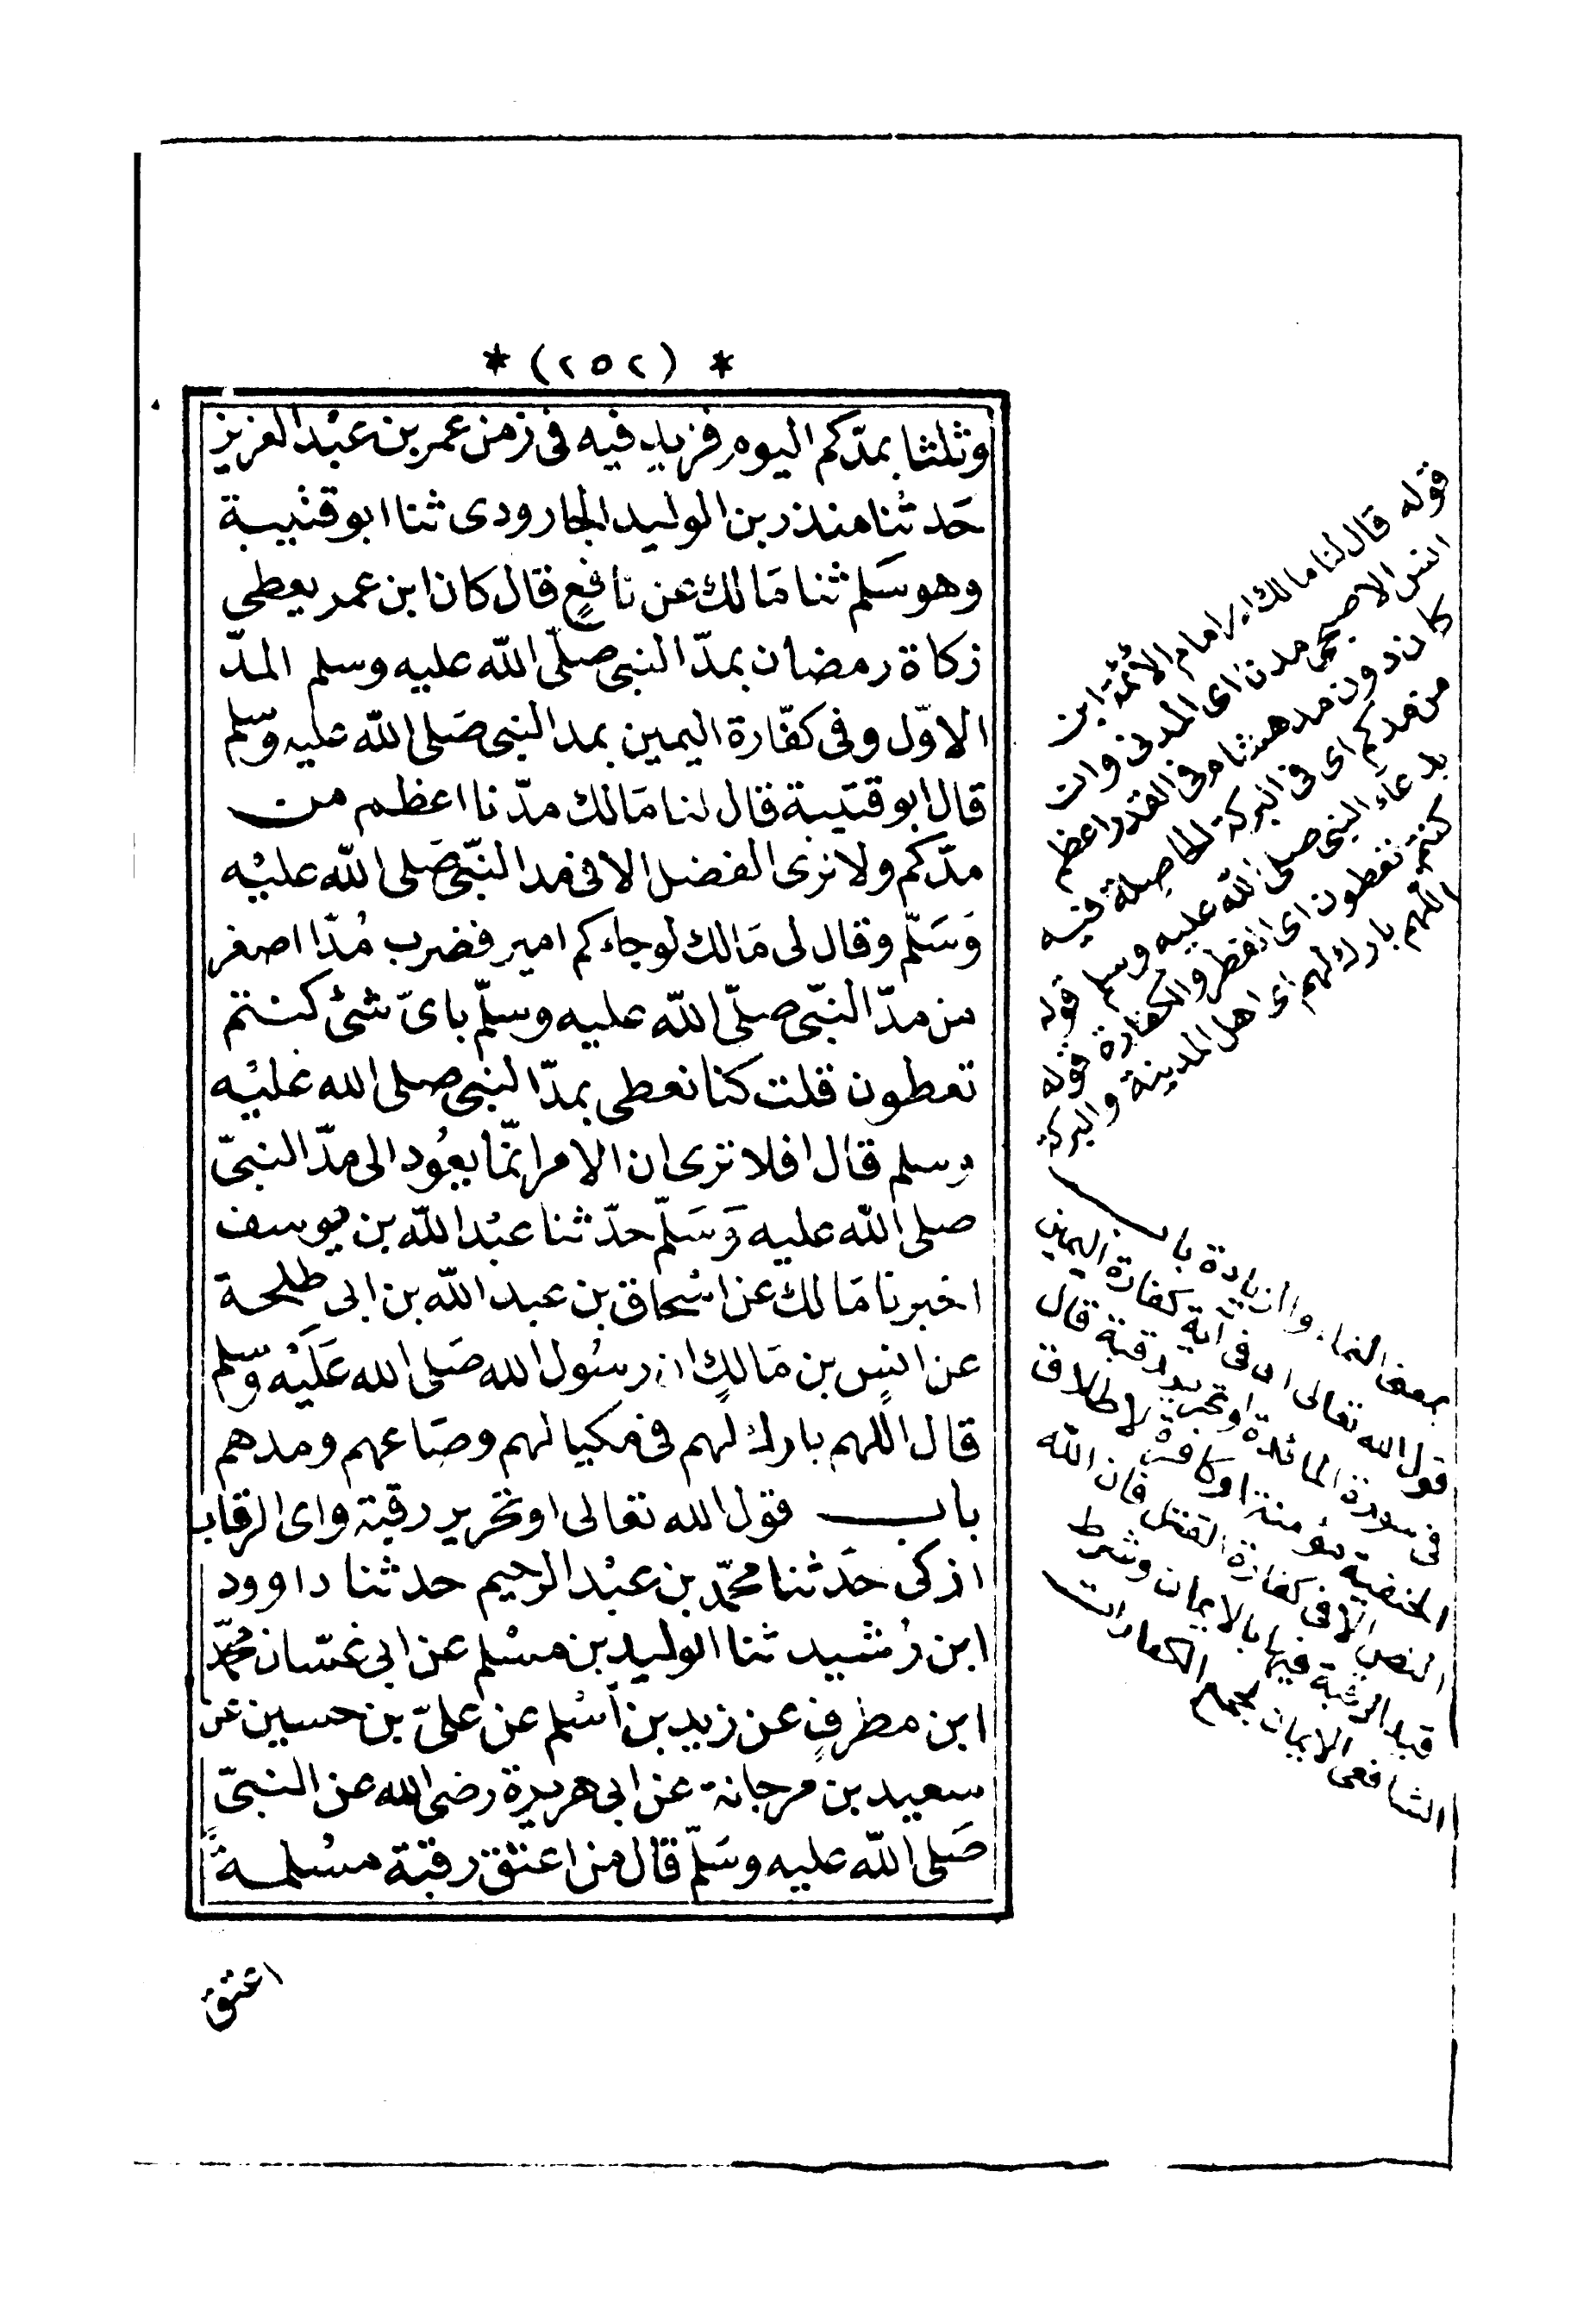 * (٢٥٢) *
وثلثا بمدّكم اليوم فزيد فيه فى زمن عمر بن عبْد العزيز
حَدثنا منذر بن الوليد الجارودى ثنا ابو قتيبة
وهو سَلم ثنا مَالك عن نافعٍ قال كان ابن عمر يعطى
زكاة رمضان بمدّ النبى صلّى اللّه عليه وسلم المدّ
الاوّل وفى كفّارة اليمين بمد النبى صَلى اللّه عليه وسّلم
قال ابو قتيبة قال لنا مَالك مدّنا اعظم من
مدّكم ولا نرى الفضل الا فى مد النّبى صَلى اللّه عليْه
وَسَلّم وقال لى مَالك لو جاءكم امير فضرب مُدّا اصغر
من مدّ النّبى صلّى اللّه عليه وسلّم باىّ شئ كنتم
تعطون قلت كنا نعطى بمدّ النبى صلى الله عليْه
وسلم قال افلا ترى ان الامر انّما يعُود الى مدّ النبىّ
صلى اللّه عليه وَسَلّم حدّثنا عبْد اللّه بن يوسف
اخبرنا مَالك عن اسْحاق بن عبد اللّه بن ابى طلحة
عن انسٍ بن مَالكٍ ان رسُول الله صَلى الله عَلَيْه وسّلم
قال اللهم بارك لهم فى مكيالهم وصَاعهم ومدهم
باب قول الله تعالى او تحرير رقبة واى الرقاب
ازكى حَدثنا محمّد بن عبْد الرحيم حدثنا داوود
ابن رُشيد ثنا الوليد بن مسْلم عن ابى غسّان محمّد
ابن مطرفٍ عن زيد بن اَسْلم عن علىّ بن حسين عن
سعيد بن مرجانة عن ابى هريرة رضى الله عن النبىّ
صَلى اللّه عليه وسَلّم قال من اعتق رقبة مسْلمةً
اعتق
قوله قال لنا مالك امام الائمة ابن
انس الاصبحى مدنا اى المدنى وان
كان دون مد هشام فى القدر اعظم
من مدكم اى فى البركة الحاصلة فيه
بدعاء النبى صلى الله عليه وسلم قوله
كنتم تعطون اى الفطر والكفارة قوله
اللهم بارك لهم اى اهل المدينة والبركة
بمعنى النماء والزيادة باب
قول الله تعالى اى فى آية كفارة اليمين
فى سورة المائدة او تحرير رقبة قال
الحنفية مؤمنة او كافرة لاطلاق
النص الا فى كفارة القتل فان الله
قيد الرقبة فيها بالايمان وشرط
الشافعى الايمان لجميع الكفارات